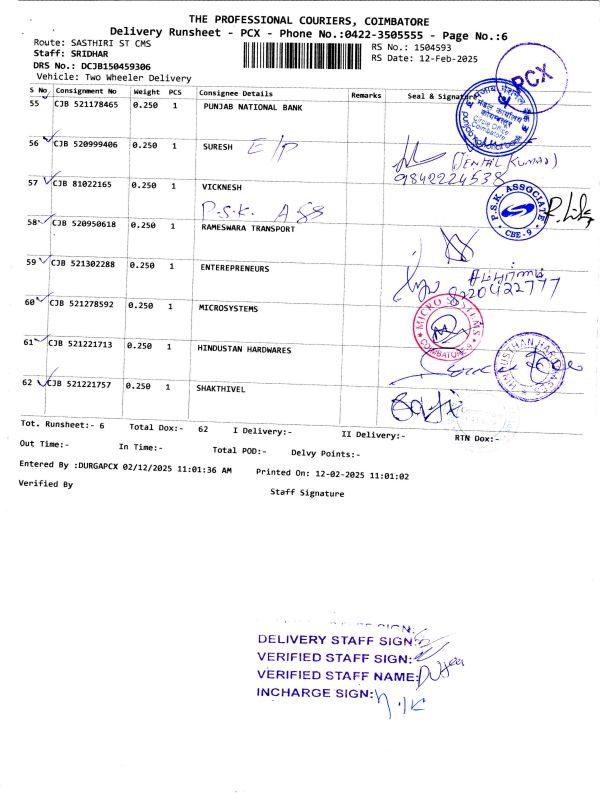 THE PROFESSIONAL COURIERS, COIMBATORE
Delivery Runsheet - PCX - Phone No.:0422-3505555 - Page No.:6
Route: SASTHIRI ST CMS RS No.: 1504593
Staff: SRIDHAR RS Date: 12-Feb-2025
DRS No.: DCJB150459306
Vehicle: Two Wheeler Delivery
PCX
S No Consignment No Weight PCS Consignee Details Remarks Seal & Signature
55 CJB 521178465 0.250 1 PUNJAB NATIONAL BANK
Circle Office
Coimbatore
punjab national bank
56 CJB 520999406 0.250 1 SURESH E/P
(DENTAL KUMAR)
9842224538
57 CJB 81022165 0.250 1 VICKNESH
P.S.K. ASS
P.S.K. ASSOCIATE
CBE-9
58 CJB 520950618 0.250 1 RAMESWARA TRANSPORT
59 CJB 521302288 0.250 1 ENTEREPRENEURS
8220922777
60 CJB 521278592 0.250 1 MICROSYSTEMS
MICRO SYSTEMS
COIMBATORE-9
61 CJB 521221713 0.250 1 HINDUSTAN HARDWARES
62 CJB 521221757 0.250 1 SHAKTHIVEL
Tot. Runsheet:- 6 Total Dox:- 62 I Delivery:- II Delivery:- RTN Dox:-
Out Time:- In Time:- Total POD:- Delvy Points:-
Entered By :DURGAPCX 02/12/2025 11:01:36 AM Printed On: 12-02-2025 11:01:02
Verified By Staff Signature
DELIVERY STAFF SIGN:
VERIFIED STAFF SIGN:
VERIFIED STAFF NAME:
INCHARGE SIGN: